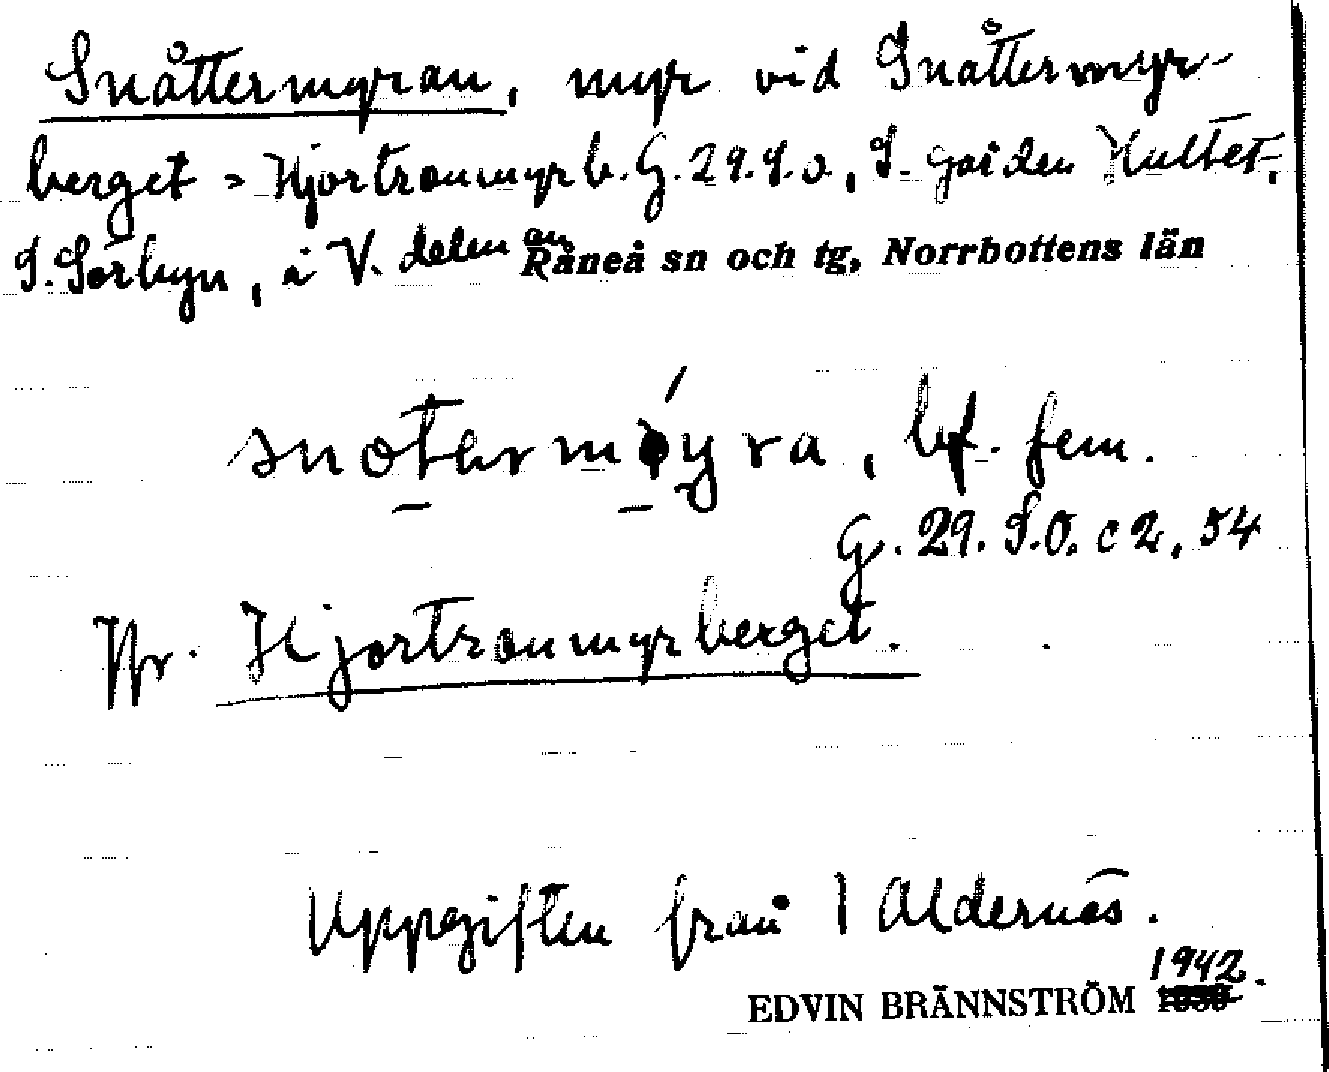 Snåttermyran, myr vid Snåttermyr-
berget = Hjortronmyrb. G.29.S.o, S. gården Hultet,
S. Sörbyn, i V. delen av
Råneå sn och tg, Norrbottens län
snotermöyra, bf. fem.
G. 29. S.O. c 2, 54
Jfr. Hjortronmyrberget.
Uppgiften från 1 Aldernäs.
1942.
EDVIN BRÄNNSTRÖM